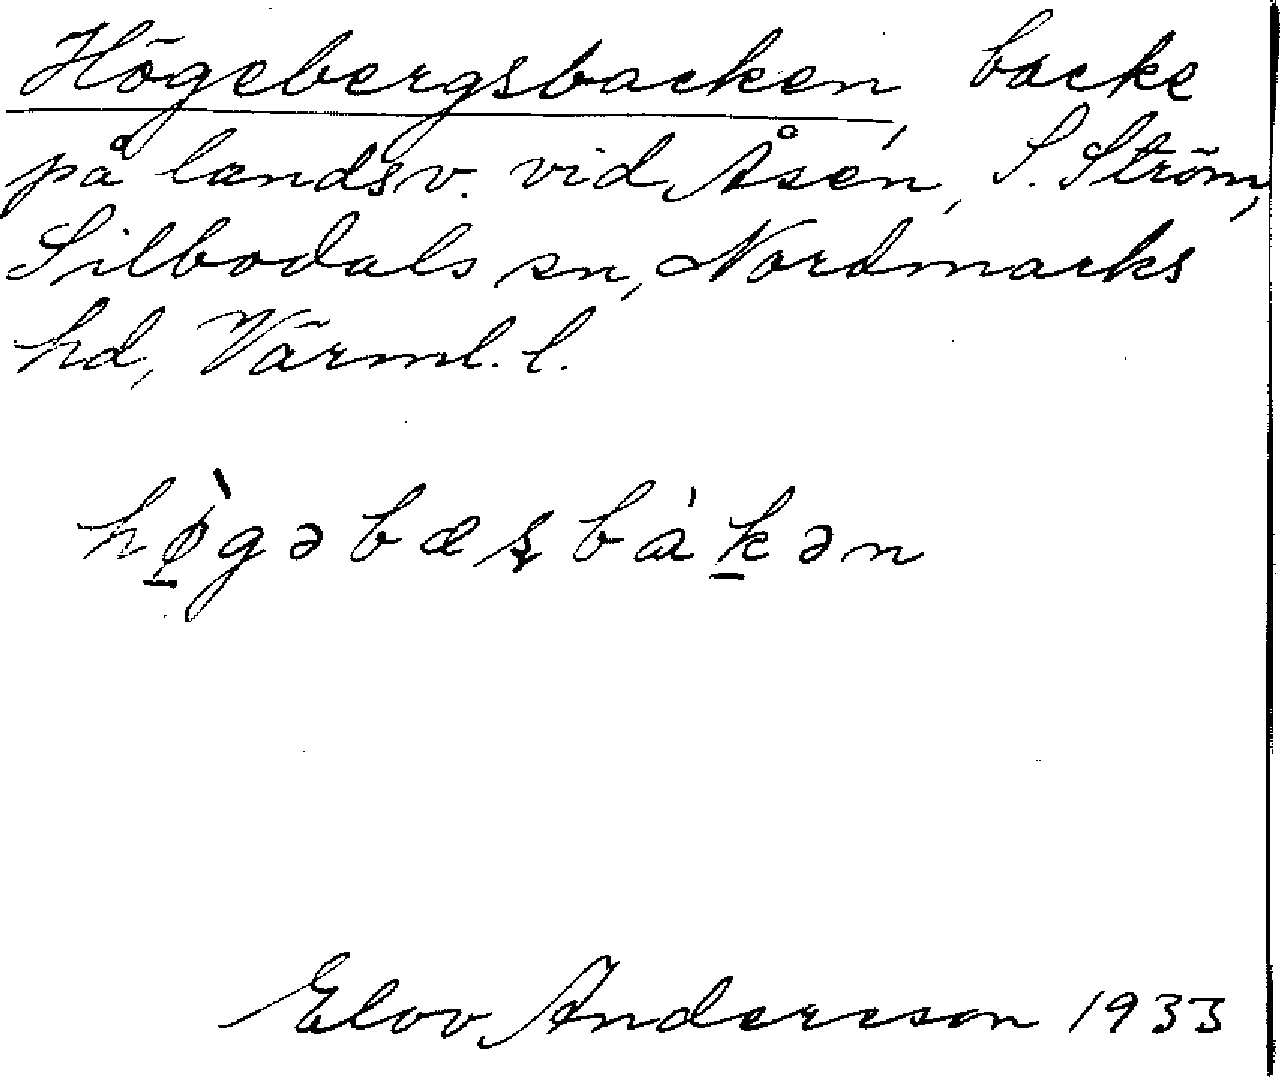 Högebergsbacken, backe
på landsv. vid Åsen, S. Ström,
Silbodals sn, Nordmarks
hd, Värml. l.
hø̠̀gəbæʂbák̠ən
Elov Andersson 1933